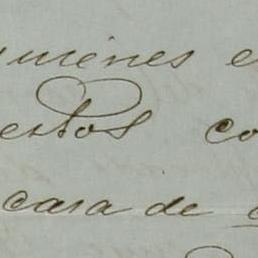 quienes e
estos co
casa de